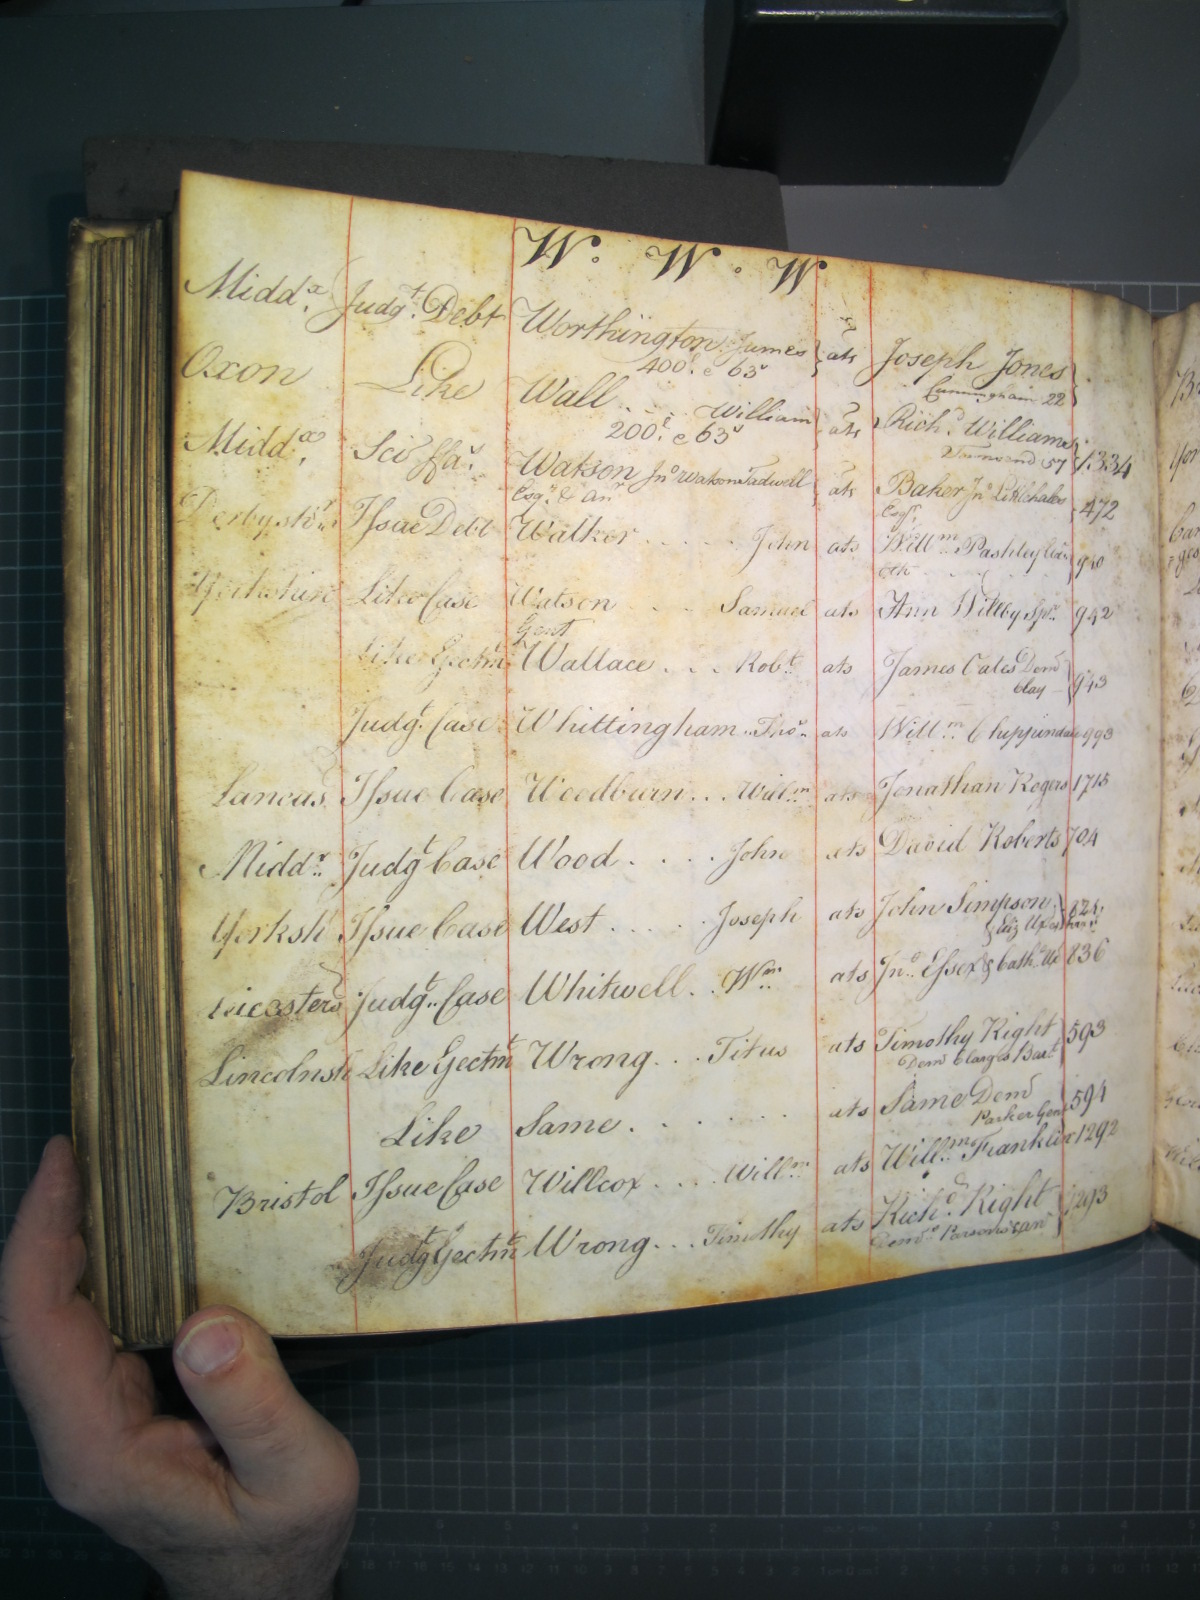 W. W. W
Middx. Judgt. Debt Worthington James ats Joseph Jones
400l. e 63s Cunningham 22
Oxon Like Wall . . . . William ats Richd. Williams 1334
200l. e 63s Townsend 57
Middx. Sci ffas. Watson Jno Watson Tadwell ats Baker Jno 472
Esqr. & anr Esqr.
Derbyshire Issue Debt Walker . . . . . John ats Willm. Pashley 940
Yorkshire Like Case Watson . . . Samuel ats Ann Willby Spr. 942
Gent
Like Ejectmt Wallace . . . Robt. ats James Cates Demd 943
Clay
Judgt. Case Whittingham .. Thos.. ats Willm. Chippindale 993
Lancas. Issue Case Woodburn . . . Willm. ats Jonathan Rogers 1715
Middx. Judgt Case Wood . . . . John ats David Roberts 704
Yorksh Issue Case West . . . . . Joseph ats John Simpson
& Eliz Ux
Leicesters Judgt.. Case Whitwell . . Wm.. ats Jno. Essex & Cath. Ux 836
Lincolnsh Like Ejectmt Wrong . . . Titus ats Timothy Right 593
Demd Clarges Bart
Like Same . . . . . . ats Same Demd 594
Parker Gent
Bristol Issue Case Willcox . . . . Willm. ats Willm. Franklin 1292
Judgt Ejectmt Wrong . . . Timothy ats Richd. Right 1293
Demd. Parsons & anr